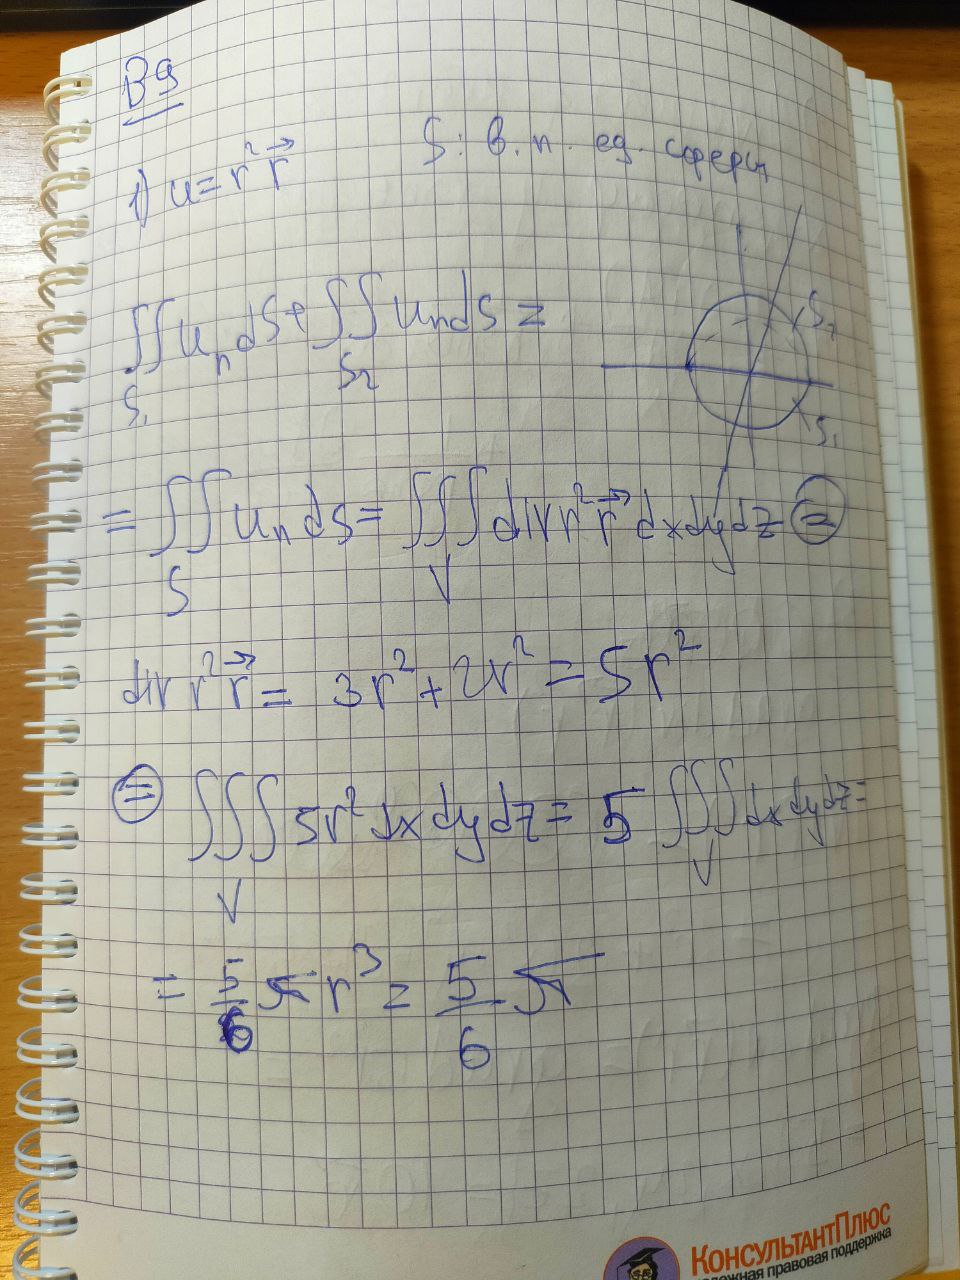 В9
1) u = r² r⃗    S: в. п. ед. сферы
∬ uₙ dS + ∬ uₙ dS =
S₁ S₂
S₂
S₁
= ∬ uₙ dS = ∭ div r² r⃗ dx dy dz =
S V
div r² r⃗ = 3r² + 2r² = 5r²
= ∭ 5r² dx dy dz = 5 ∭ dx dy dz =
V V
= 5/6 π r³ = 5/6 π
КонсультантПлюс
правовая поддержка